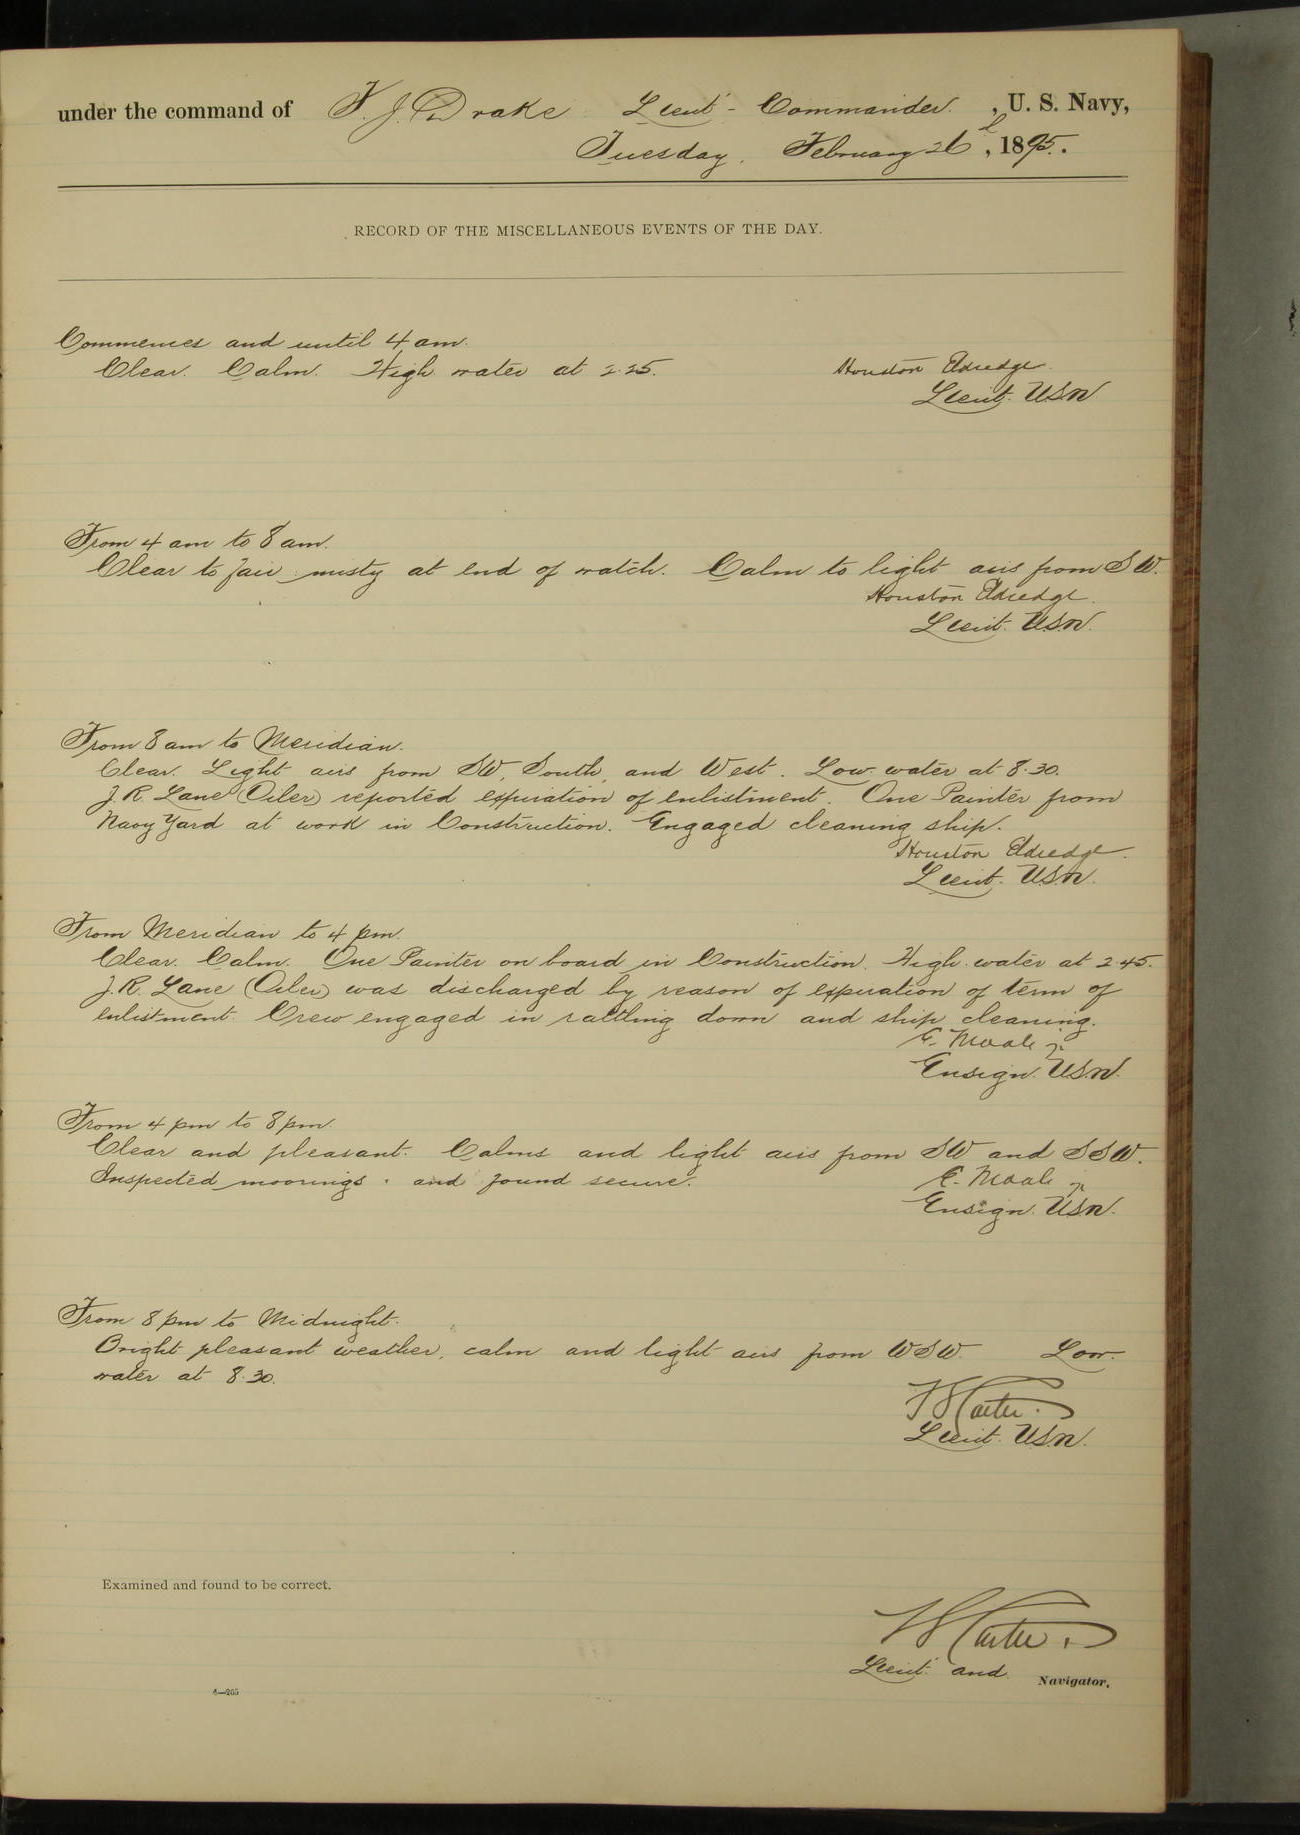 under the command of F. J. Drake Lieut - Commander , U. S. Navy,
Tuesday, February 26th, 1895.
RECORD OF THE MISCELLANEOUS EVENTS OF THE DAY.
Commences and until 4 am.
Clear. Calm. High water at 2.25.
Houston Eldredge.
Lieut. USN
From 4 am to 8 am.
Clear to fair misty at end of watch. Calm to light airs from SW.
Houston Eldredge.
Lieut. USN.
From 8 am to Meridian.
Clear. Light airs from SW, South, and West. Low water at 8.30.
J. R. Lane (Oiler) reported expiration of enlistment. One Painter from
Navy Yard at work in Construction. Engaged cleaning ship.
Houston Eldredge.
Lieut. USN.
From Meridian to 4 pm.
Clear. Calm. One Painter on board in Construction. High water at 2.45.
J. R. Lane (Oiler) was discharged by reason of expiration of term of
enlistment. Crew engaged in rattling down and ship cleaning.
E. Moale jr
Ensign. USN.
From 4 pm to 8 pm.
Clear and pleasant. Calms and light airs from SW and SSW.
Inspected moorings and found secure.
E. Moale jr
Ensign. USN.
From 8 pm to Midnight.
Bright pleasant weather, calm and light airs from WSW. Low
water at 8.30.
Carter.
Lieut. USN.
Examined and found to be correct.
Carter.
Lieut. and Navigator.
4—205